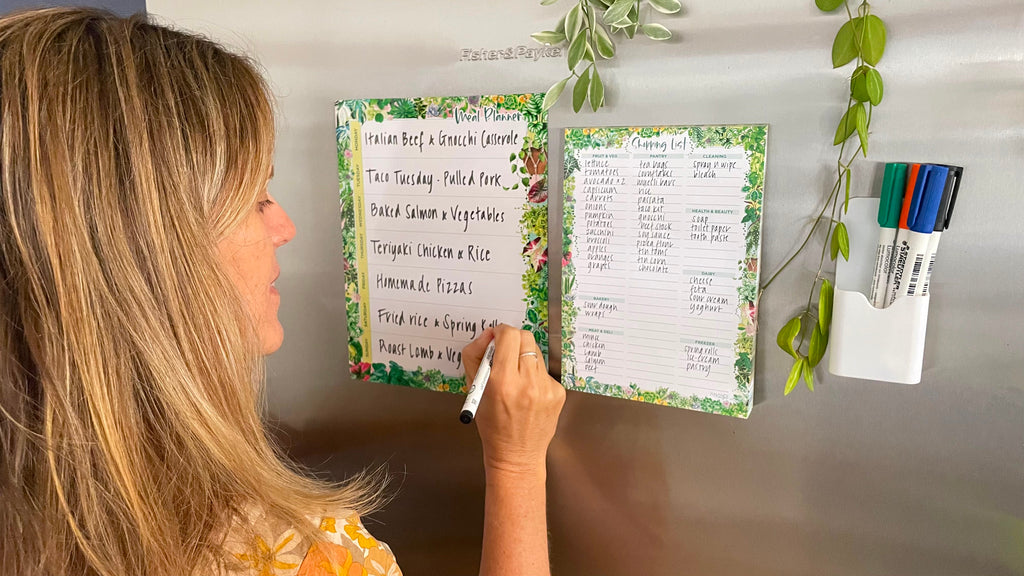 Fisher&Paykel
Meal Planner
Italian Beef & Gnocchi Casserole
Taco Tuesday - Pulled Pork
Baked Salmon & Vegetables
Teriyaki Chicken & Rice
Homemade Pizzas
Fried rice & Spring
Roast Lamb & Veg
Shopping List
FRUIT & VEG
lettuce
tomatoes
avocado x2
capsicum
carrots
onions
pumpkin
potatoes
zucchini
broccoli
apples
oranges
grapes
BAKERY
sourdough
wraps
MEAT & DELI
mince
chicken
lamb
salmon
beef
PANTRY
tea bags
cornflakes
muesli bars
rice
passata
taco kit
gnocchi
beef stock
soy sauce
pizza
tin toms
tin corn
chocolate
CLEANING
spray n wipe
bleach
HEALTH & BEAUTY
soap
toilet paper
tooth paste
DAIRY
cheese
feta
sour cream
yoghurt
FREEZER
spring rolls
ice cream
pastry
STAEDTLER
Lumocolor